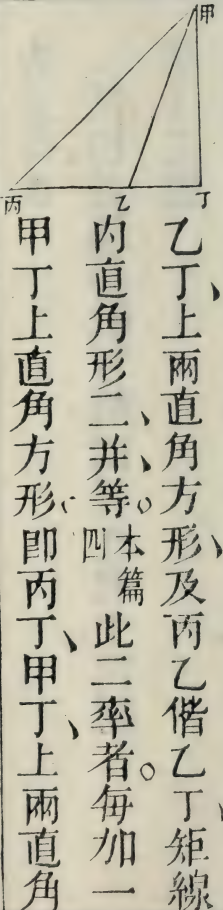 甲
丙
乙
丁
乙丁、上兩直角方形、及丙乙偕乙丁、矩線
内直角形二、并、等。本篇四此二率者。每加一
甲丁上直角方形、卽丙丁、甲丁、上兩直角